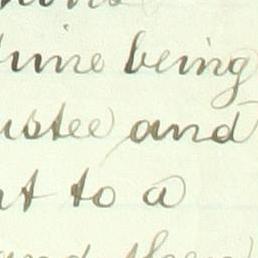 time being
ustee and
nt to a